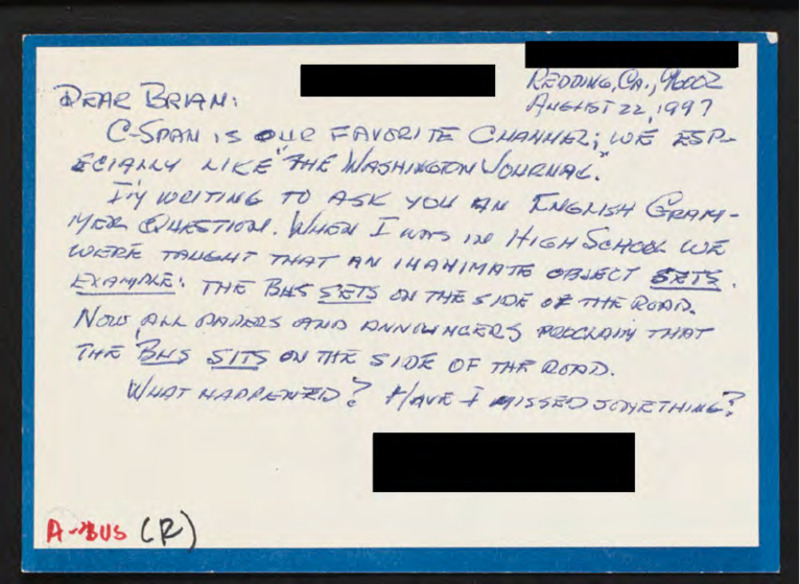 REDDING, CA., 96002
AUGUST 22, 1997
DEAR BRIAN:
C-SPAN IS OUR FAVORITE CHANNEL; WE ESP-
ECIALLY LIKE "THE WASHINGTON JOURNAL."
I'M WRITING TO ASK YOU AN ENGLISH GRAM-
MER QUESTION. WHEN I WAS IN HIGH SCHOOL WE
WERE TAUGHT THAT AN INANIMATE OBJECT SETS.
EXAMPLE: THE BUS SETS ON THE SIDE OF THE ROAD.
NOW, ALL PAPERS AND ANNOUNCERS PROCLAIM THAT
THE BUS SITS ON THE SIDE OF THE ROAD.
WHAT HAPPENED? HAVE I MISSED SOMETHING?
A-BUS (R)